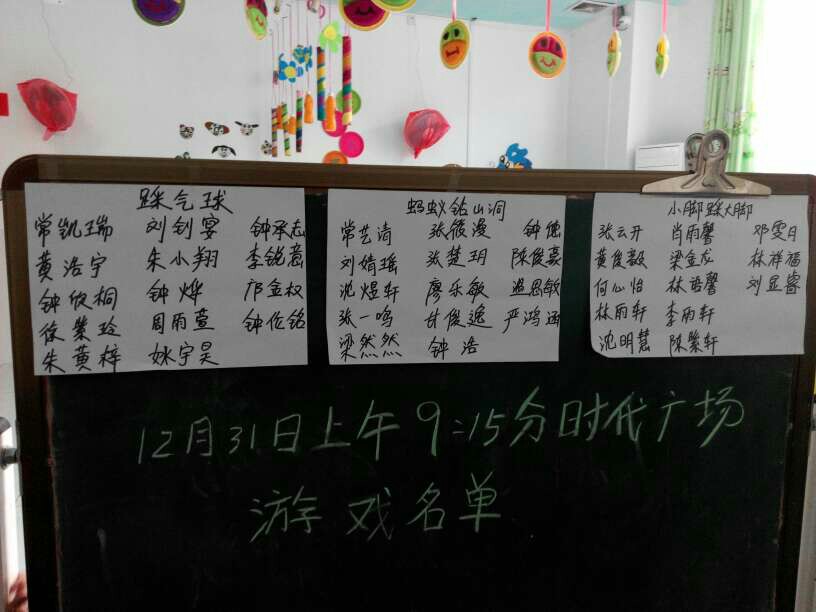 踩气球
常凯瑞 刘钊宴 钟承志
黄浩宁 朱小翔 李锐意
钟欣桐 钟烨 邝金权
徐紫玲 周雨萱 钟佐铭
朱黄梓 姚宇昊
蚂蚁钻山洞
常艺清 张筱漫 钟健
刘婧瑶 张楚玥 陈俊豪
沈煜轩 廖乐敏 温思敏
张一鸣 甘俊逸 严鸿涵
梁然然 钟浩
小脚踩大脚
张云开 肖雨馨 邓雯月
黄俊毅 梁金龙 林祥福
何心怡 林语馨 刘显睿
林雨轩 李雨轩
沈明慧 陈紫轩
12月31日上午9:15分时代广场
游戏名单